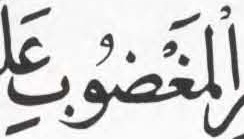 الْمَغْضُوبِ عَلَ